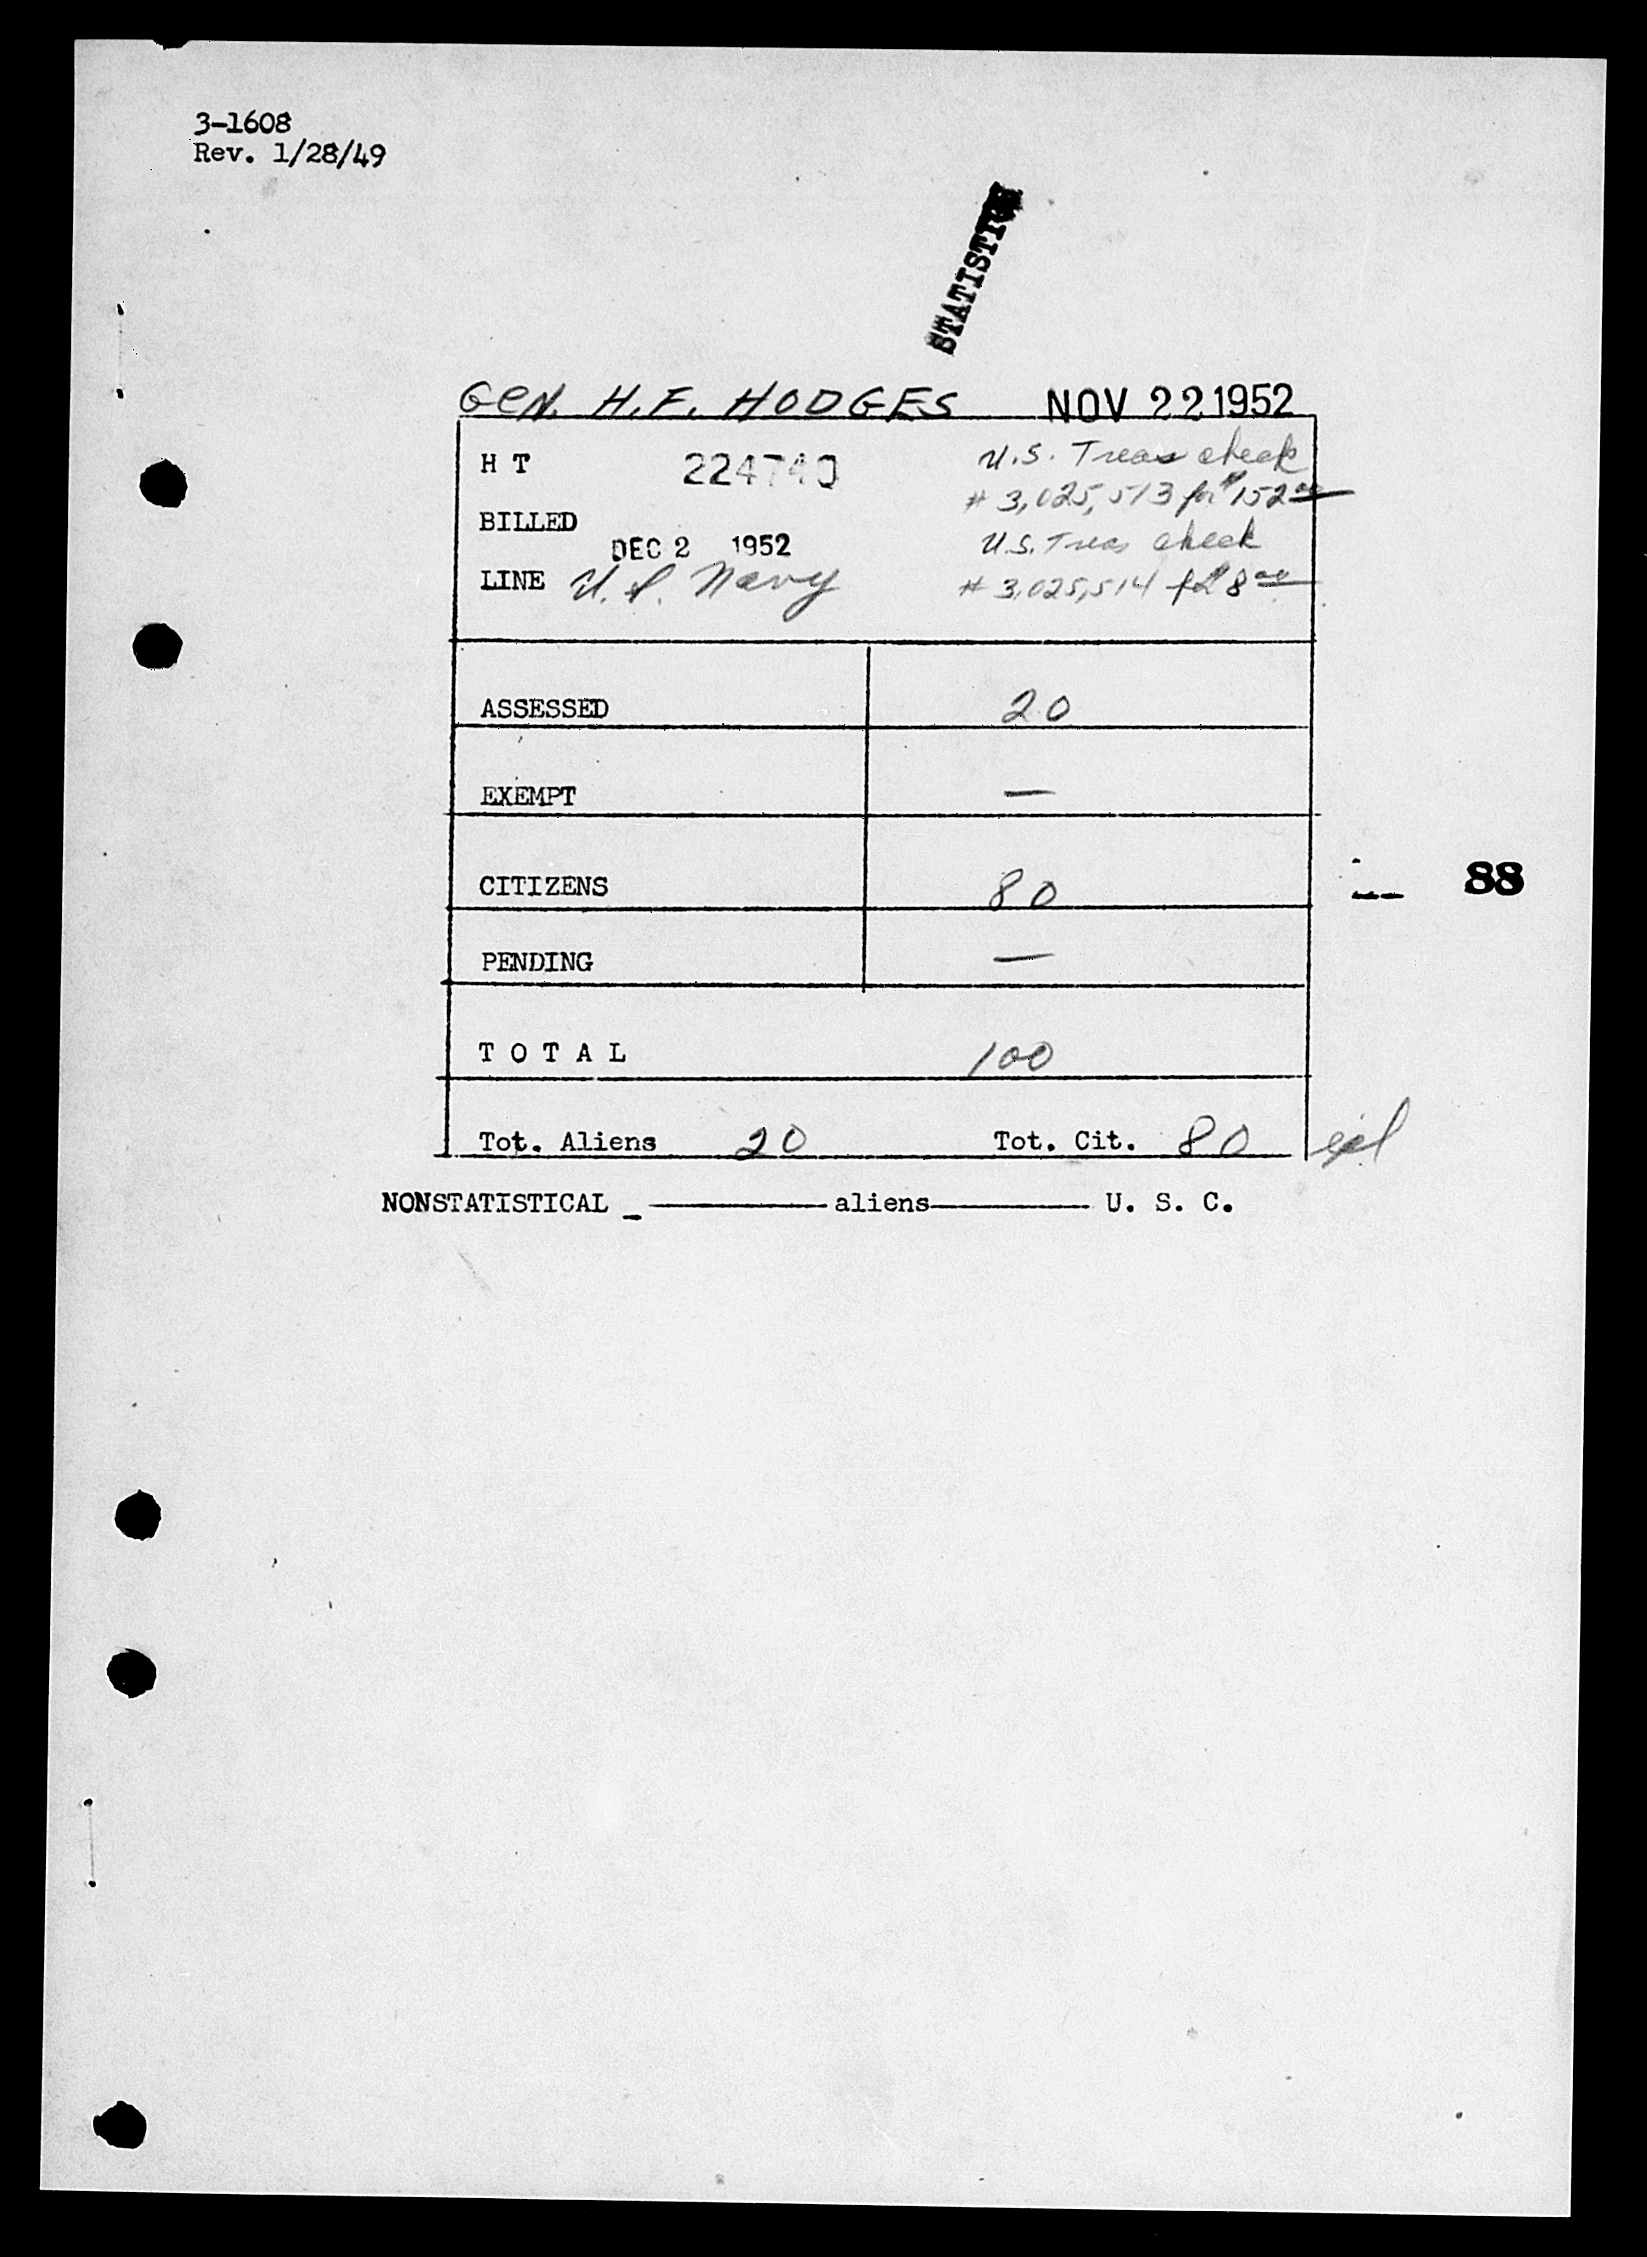 3-1608
Rev. 1/28/49
GEN. H.F. HODGES NOV 22 1952
H T 224740 U.S. Treas check
# 3,025,513 for $152 00
BILLED
DEC 2 1952 U.S. Treas check
LINE U.S. Navy # 3,025,514 for $8 00
ASSESSED 20
EXEMPT —
CITIZENS 80
88
PENDING —
T O T A L 100
Tot. Aliens 20 Tot. Cit. 80
NONSTATISTICAL _ ———— aliens ———— U. S. C.